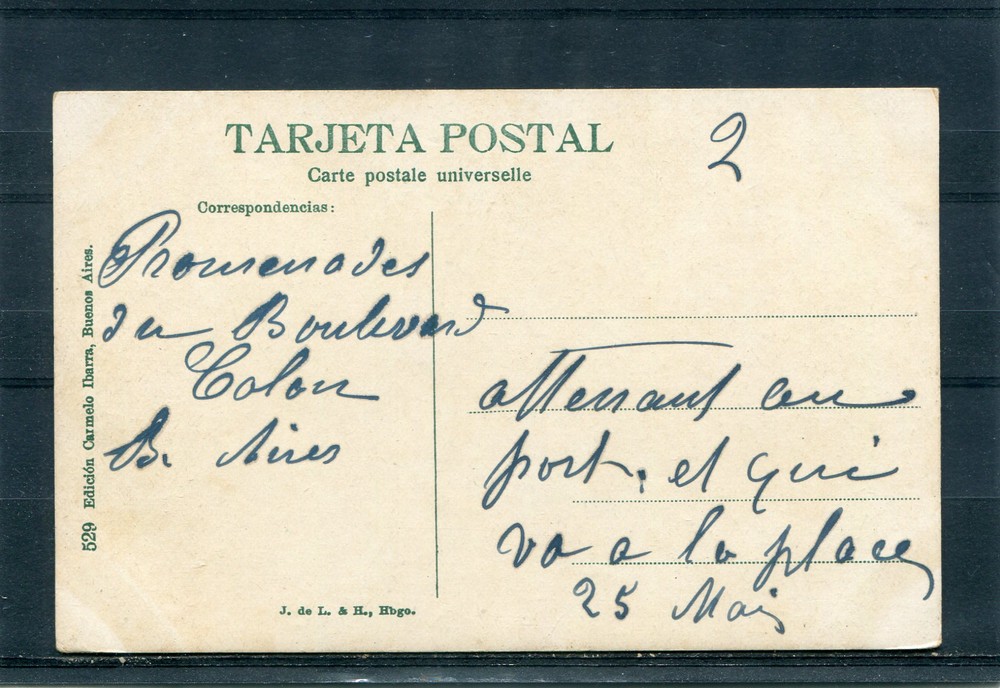 TARJETA POSTAL
2
Carte postale universelle
Correspondencias:
Promenades
du Boulevard
Colon
B. Aires
attenant au
port, et qui
va a la place
25 Mai
529 Edición Carmelo Ibarra, Buenos Aires.
J. de L. & H., Hbgo.